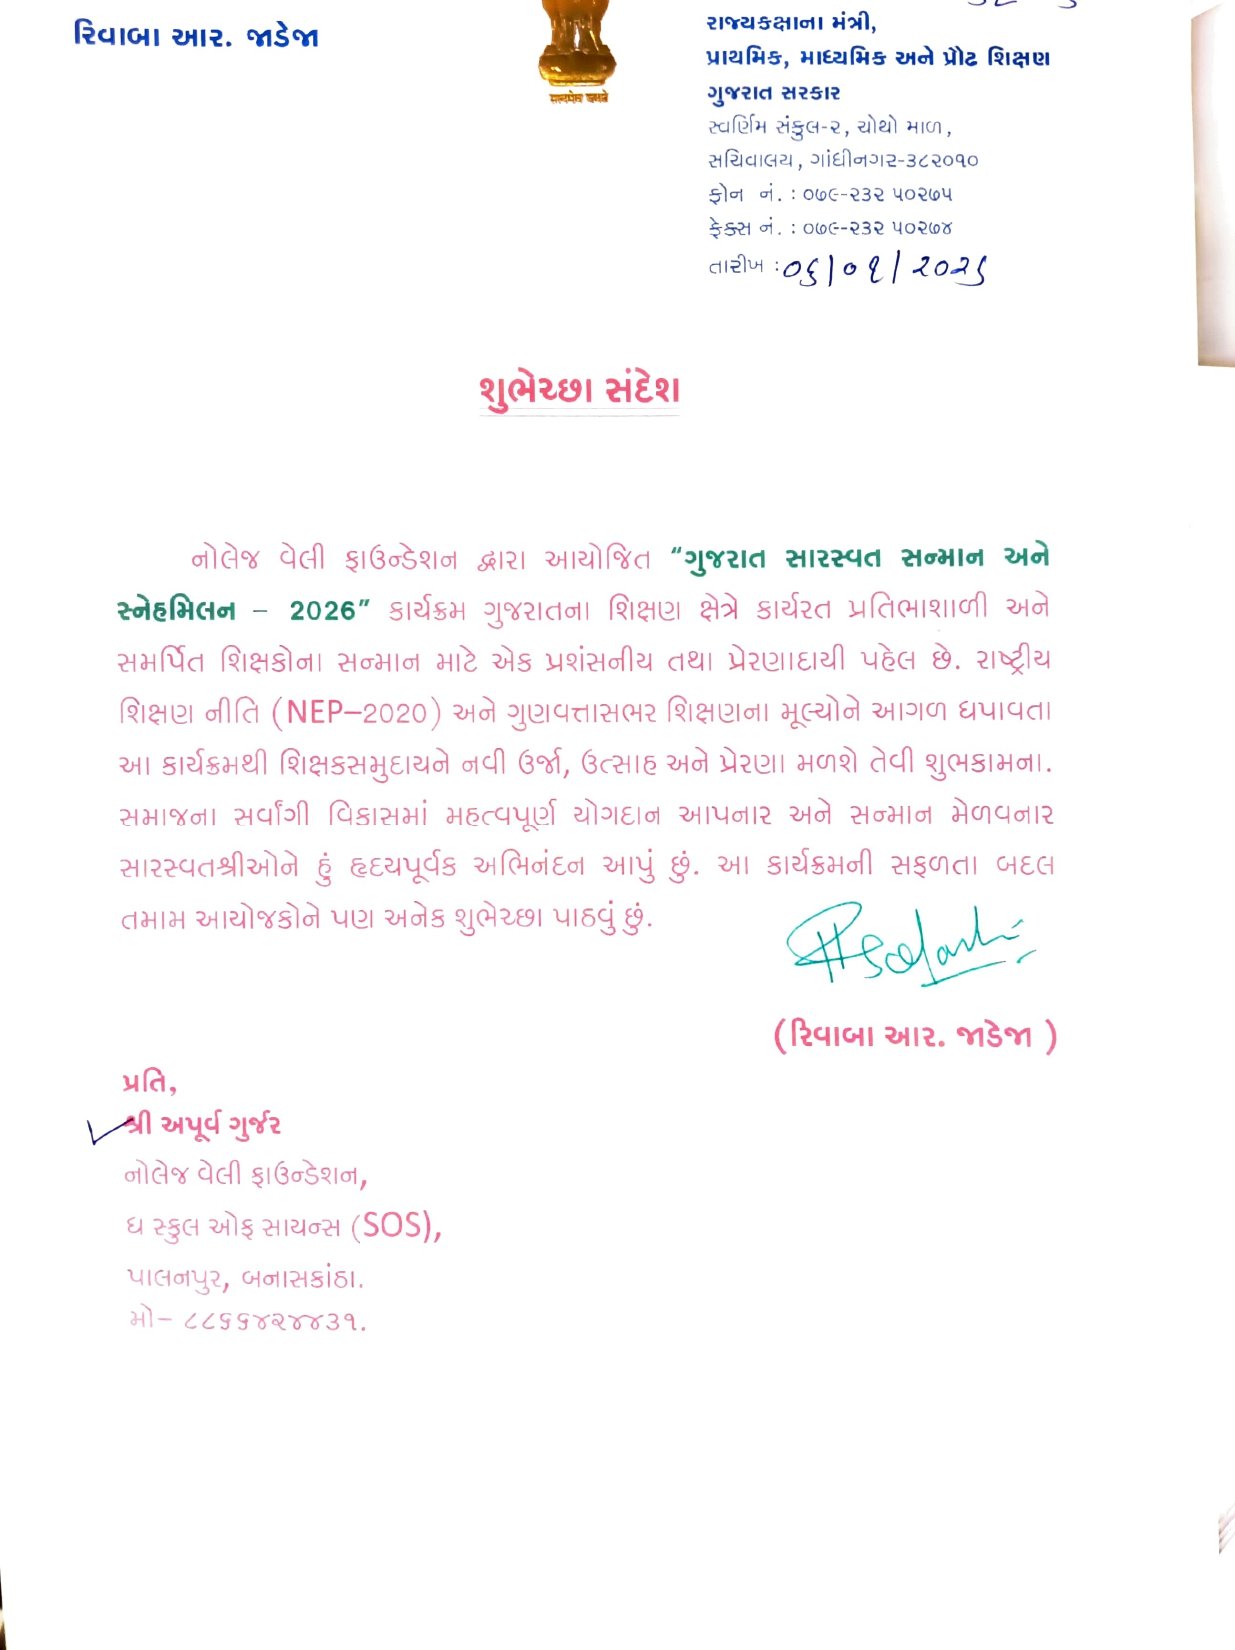 રિવાબા આર. જાડેજા
सत्यमेव जयते
રાજ્યકક્ષાના મંત્રી,
પ્રાથમિક, માધ્યમિક અને પ્રૌઢ શિક્ષણ
ગુજરાત સરકાર
સ્વર્ણિમ સંકુલ-૨, ચોથો માળ,
સચિવાલય, ગાંધીનગર-૩૮૨૦૧૦
ફોન નં. : ૦૭૯-૨૩૨ ૫૦૨૭૫
ફેક્સ નં. : ૦૭૯-૨૩૨ ૫૦૨૭૪
તારીખ : ૦૬/૦૧/૨૦૨૬
શુભેચ્છા સંદેશ
નોલેજ વેલી ફાઉન્ડેશન દ્વારા આયોજિત “ગુજરાત સારસ્વત સન્માન અને
સ્નેહમિલન – 2026” કાર્યક્રમ ગુજરાતના શિક્ષણ ક્ષેત્રે કાર્યરત પ્રતિભાશાળી અને
સમર્પિત શિક્ષકોના સન્માન માટે એક પ્રશંસનીય તથા પ્રેરણાદાયી પહેલ છે. રાષ્ટ્રીય
શિક્ષણ નીતિ (NEP–2020) અને ગુણવત્તાસભર શિક્ષણના મૂલ્યોને આગળ ધપાવતા
આ કાર્યક્રમથી શિક્ષકસમુદાયને નવી ઉર્જા, ઉત્સાહ અને પ્રેરણા મળશે તેવી શુભકામના.
સમાજના સર્વાંગી વિકાસમાં મહત્વપૂર્ણ યોગદાન આપનાર અને સન્માન મેળવનાર
સારસ્વતશ્રીઓને હું હૃદયપૂર્વક અભિનંદન આપું છું. આ કાર્યક્રમની સફળતા બદલ
તમામ આયોજકોને પણ અનેક શુભેચ્છા પાઠવું છું.
(રિવાબા આર. જાડેજા )
પ્રતિ,
શ્રી અપૂર્વ ગુર્જર
નોલેજ વેલી ફાઉન્ડેશન,
ધ સ્કુલ ઓફ સાયન્સ (SOS),
પાલનપુર, બનાસકાંઠા.
મો– ૮૮૬૬૪૨૪૪૩૧.